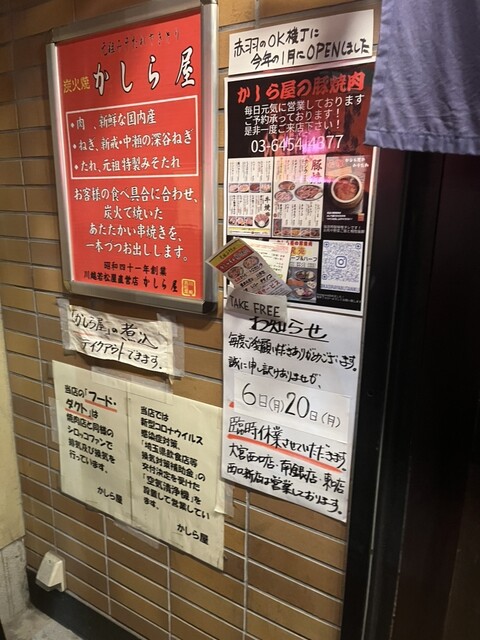 元祖みそだれやきとり
炭火焼 かしら屋
・肉、新鮮な国内産
・ねぎ、新戒・中瀬の深谷ねぎ
・たれ、元祖特製みそたれ
お客様の食べ具合に合わせ、
炭火で焼いた
あたたかい串焼きを、
一本づつお出しします。
昭和四十一年創業
川越若松屋直営店 かしら屋
「かしら屋」の煮込
テイクアウトできます。
当店の「フード・
ダクト」は
焼肉店と同様の
シロッコファンで
排気及び換気を
行っています。
かしら屋
当店では
新型コロナウイルス
感染症対策、
「埼玉県飲食店等
換気対策補助金」の
交付決定を受けた
「空気清浄機」を
設置して営業してい
ます。
かしら屋
赤羽のOK横丁に
今年の1月にOPENしました
かしら屋の豚焼肉
毎日元気に営業しております
ご予約承っております!!
是非一度ご来店下さい!
03-6454-4377
TAKE FREE
お知らせ
毎度ご愛顧いただきありがとうございます。
誠に申し訳ありませんが、
6日(月)20日(月)
臨時休業させていただきます。
大宮西口店・南銀店・東店
西口新店は営業しております。